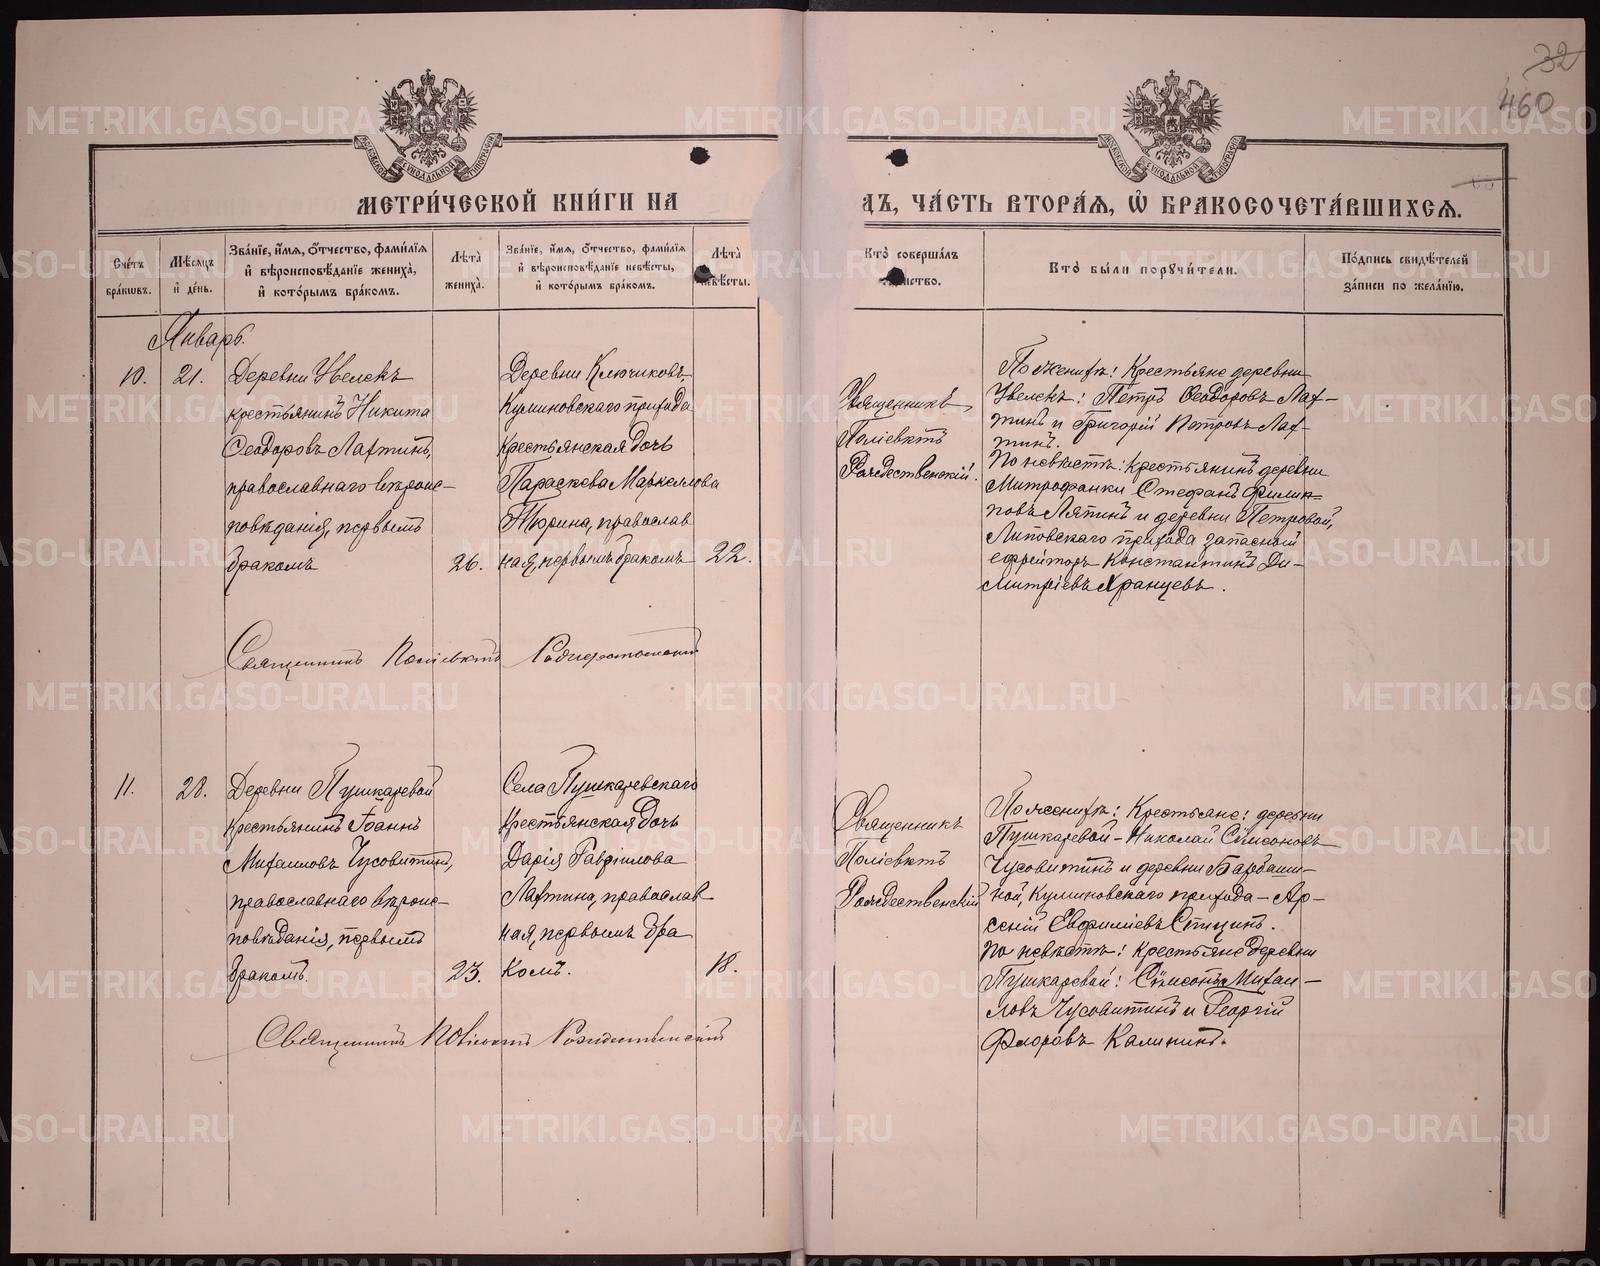 32
460
МЕТРИ́ЧЕСКОЙ КНИ́ГИ НА
ДЪ, ЧА́СТЬ ВТОРА́Я, Ѿ БРАКОСОЧЕТА́ВШИХСЯ.
Сче́тъ бра́кωвъ.
Мѣ́сяцъ и҆ де́нь.
Зва́нїе, и҆́мя, ѻ҆́тчество, фами́лїя
и҆ вѣроисповѣ́данїе жениха̀,
и҆ кото́рымъ бра́комъ.
Лѣ́та жениха̀.
Зва́нїе, и҆́мя, ѻ҆́тчество, фами́лїя
и҆ вѣроисповѣ́данїе невѣ́сты,
и҆ кото́рымъ бра́комъ.
Лѣ́та невѣ́сты.
Кто̀ соверша́лъ
Кто̀ бы́ли порꙋчи́тели.
По́дпись свидѣ́телей
за́писи по жела́нїю.
Январь.
10. 21.
Деревни Увелекъ
крестьянинъ Никита
Ѳеодоровъ Лаптинъ,
православнаго вѣроис-
повѣданія, первымъ
бракомъ
26.
Деревни Ключиковъ,
прихода
крестьянская дочь
Параскева Маркеллова
Тюрина, православ
ная, первымъ бракомъ
22.
Священникъ
Поліевктъ
Рождественскій.
По женихѣ: Крестьяне деревни
Увелекъ: Петръ Ѳеодоровъ Лап-
тинъ и Григорій Петровъ Лап-
тинъ.
По невѣстѣ: крестьянинъ деревни
Митрофанки Стефанъ Филип-
повъ Ляпинъ и деревни Петровой,
Липовскаго прихода запасный
ефрейторъ Константинъ Ди-
митріевъ Хранцевъ.
Священникъ Поліевктъ Рождественскій
11. 28.
Деревни Пушкаревой
крестьянинъ Іоаннъ
Михаиловъ Чусовитинъ,
православнаго вѣроис-
повѣданія, первымъ
бракомъ.
23.
Села Пушкаревскаго
крестьянская дочь
Дарія Гавріилова
Лаптина, православ
ная, первымъ бра
комъ.
18.
Священникъ
Поліевктъ
Рождественскій
По женихѣ: Крестьяне: деревни
Пушкаревой - Николай Сѷмеоновъ
Чусовитинъ и деревни Барбаши-
ной, прихода - Ар-
сеній Евѳиміевъ Спицинъ.
По невѣстѣ: крестьяне деревни
Пушкаревой: Сѷмеонъ Михаи-
ловъ Чусовитинъ и Георгій
Флоровъ Калининъ.
Священникъ Поліевктъ Рождественскій
METRIKI.GASO-URAL.RU